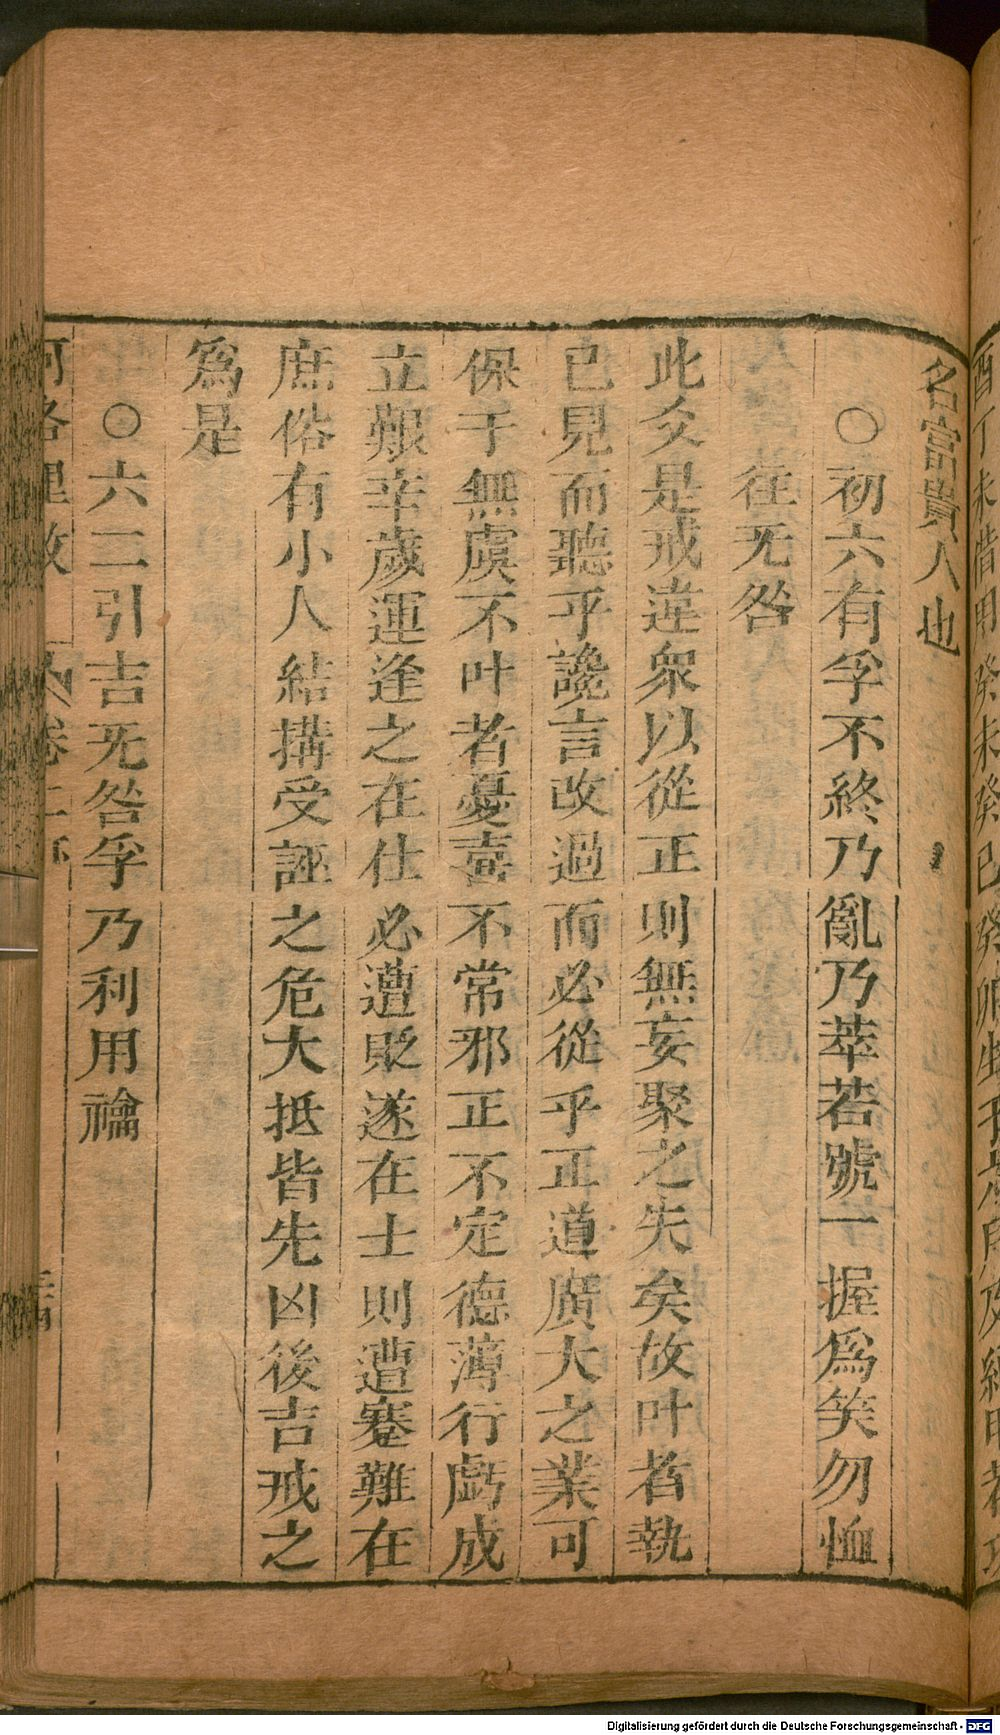 酉丁未借用癸未癸巳癸卯生
名富貴人也
〇初六有孚不終乃亂乃萃若號一握爲笑勿恤
往无咎
此爻是戒違衆以從正則無妄聚之失矣故叶者執
已見而聽乎讒言改過而必從乎正道廣大之業可
保于無虞不叶者憂喜不常邪正不定德薄行戱成
立艱辛歲運逢之在仕必遭貶逐在士則遭蹇難在
庶俗有小人結搆受誣之危大抵皆先凶後吉戒之
爲是
〇六二引吉无咎孚乃利用禴
河洛理數
卷二
Digitalisierung gefördert durch die Deutsche Forschungsgemeinschaft - DFG